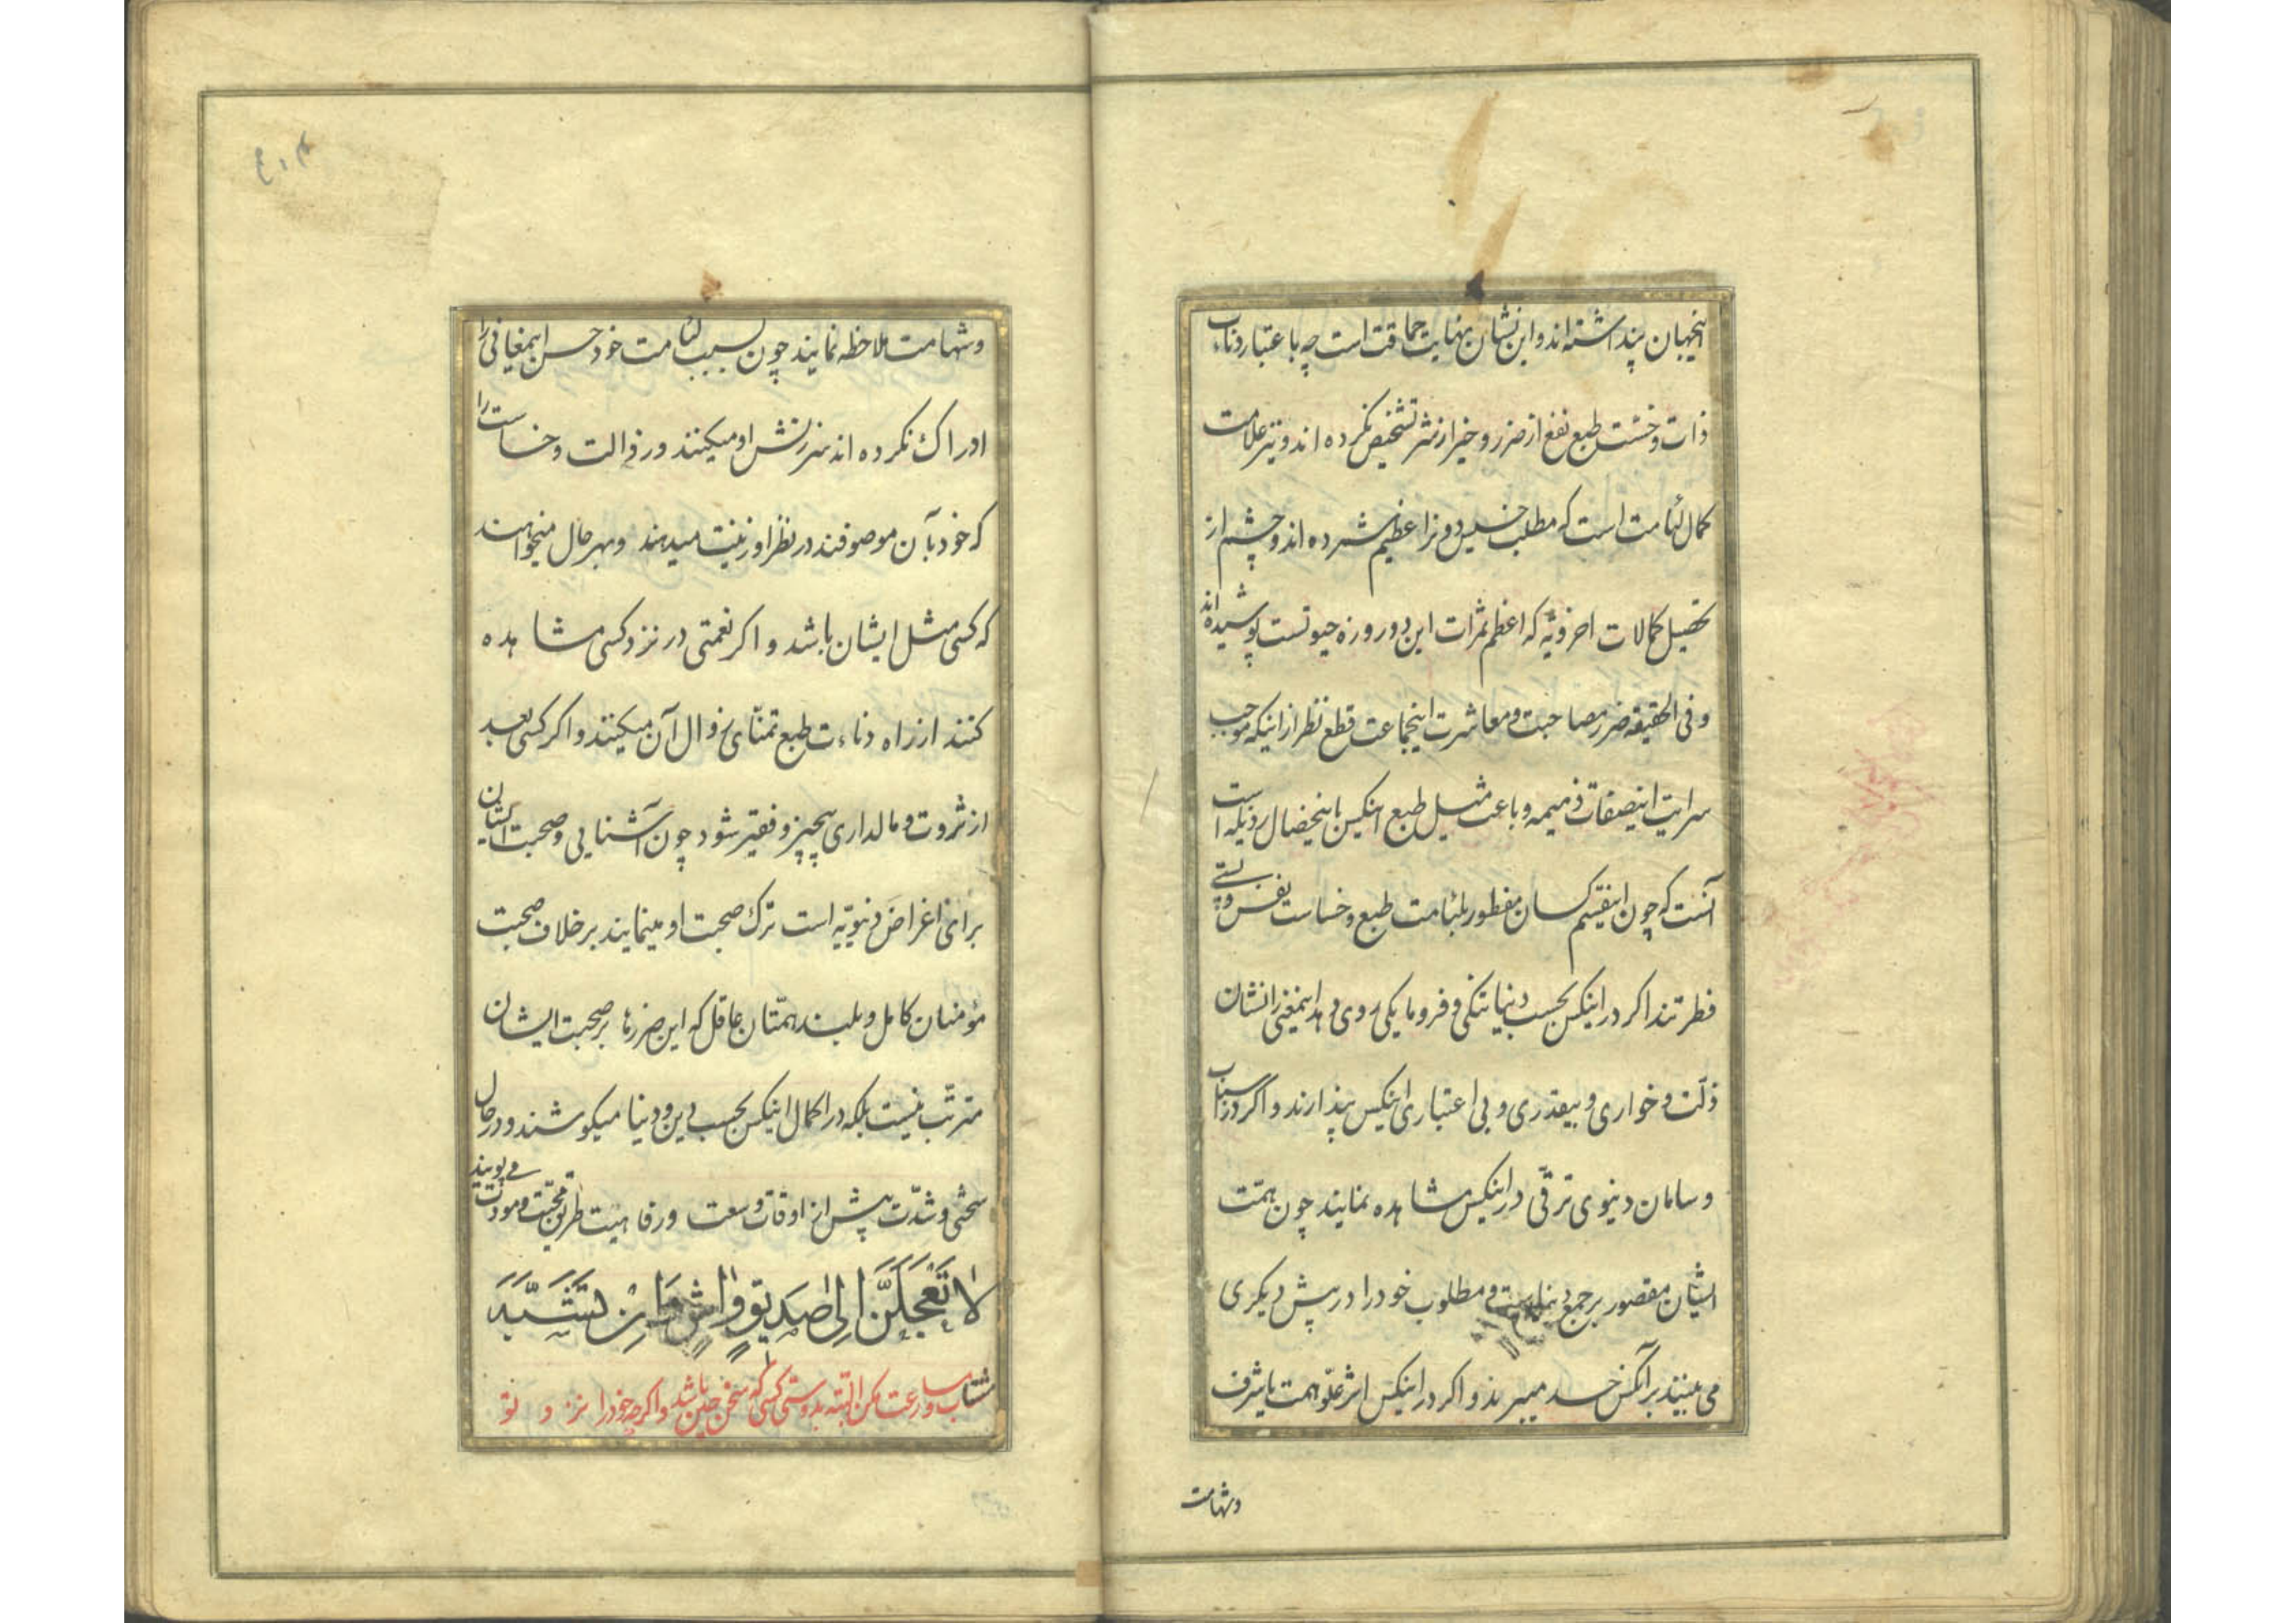 اینجهان پنداشته‌اند و این نشان نهایت حماقت است چه باعتبار دناءت
ذات و خسّت طبع نفع از ضرر و خیر از شر تشخیص نکرده اند و نیز علامت
کمال لئامت است که مطلب خسیس دونرا عظیم شمرده اند و چشم از
تحصیل کمالات اخرویّه که اعظم ثمرات این دو روزه حیوتست پوشیده‌اند
و فی الحقیقه ضرر مصاحبت و معاشرت اینجماعت قطع نظر از اینکه موجب
سرایت اینصفات ذمیمه و باعث میل طبع اینکس باینخصال رذیله است
آنست که چون اینقسم کسان مفطور بلئامت طبع و خساست نفس و پستی
فطرتند اگر در اینکس بحسب دنیا تنگی و فرومایگی روی دهد اینمعنی را نشان
ذلّت و خواری و بیقدری و بی اعتباری اینکس پندارند و اگر در اسباب
و سامان دنیوی ترقّی در اینکس مشاهده نمایند چون همّت
ایشان مقصور بر جمع دنیاست و مطلوب خود را در پیش دیگری
می بینند بر آنکس حسد میبرند و اگر در اینکس اثر علوّ همت یا شرف
وشهامت
وشهامت ملاحظه نمایند چون بسبب لئامت خود حسن اینمعانی را
ادراک نکرده اند سرزنش او میکنند و رذالت و خساست را
که خود بآن موصوفند در نظر او زینت میدهند و بهر حال میخواهند
که کسی مثل ایشان باشد و اگر نعمتی در نزد کسی مشاهده
کنند از راه دناءت طبع تمنّای زوال آن میکنند و اگر کسی بعد
از ثروت و مالداری بیچیز و فقیر شود چون آشنایی و صحبت ایشان
برای اغراض دنیویّه است ترک صحبت او مینمایند بر خلاف صحبت
مؤمنان کامل و بلند همّتان عاقل که این ضررها بر صحبت ایشان
مترتّب نیست بلکه در اکمال اینکس بحسب دین و دنیا میکوشند و در حال
سختی و شدّت پیش از اوقات وسعت و رفاهیت طریق محبّت و مودّت می پویند
لا تَعْجَلَنَّ اِلیٰ صَدِیقٍ وَاشٍ وَاِنْ تَشَبَّهَ
مشتاب و سارعت مکن البتّه بدوستی کسی که سخن چین باشد و اگر چه خود را نزد تو